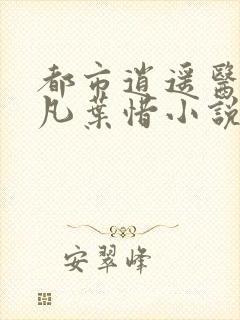 都市逍遥醫
凡葉惜小説
安翠峰